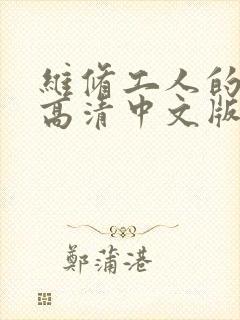 維脩工人的
高清中文版
鄭蒲港